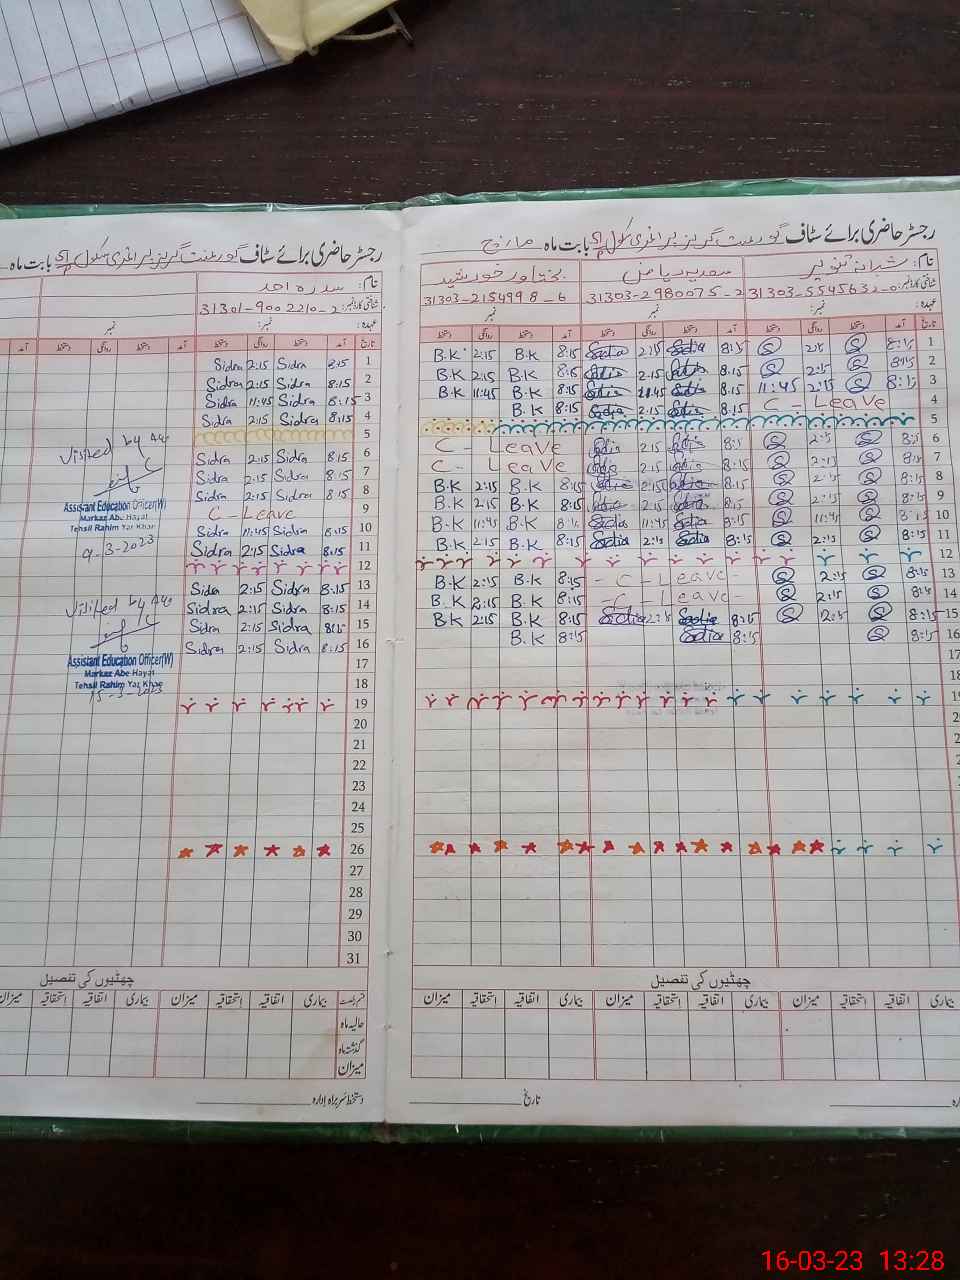 رجسٹر حاضری برائے سٹاف گورنمنٹ گرلز پرائمری سکول بابت ماہ مارچ
نام: شبانہ تنویر
سعدیہ ریاض
بختاور خورشید
شناختی کارڈ نمبر: 31303-5545632-0
31303-2980075-2
31303-2154998-6
عہدہ: نمبر نمبر
تاریخ آمد دستخط روانگی دستخط آمد دستخط روانگی دستخط آمد دستخط روانگی دستخط
1 8:15 S 2:15 S 8:15 Sadia 2:15 Sadia 8:15 B.K 2:15 B.K
2 8:15 S 2:15 S 8:15 Sadia 2:15 Sadia 8:15 B.K 2:15 B.K
3 8:15 S 2:15 11:45 8:15 Sadia Sadia 8:15 B.K 11:45 B.K
4 C - Leave 8:15 Sadia 2:15 Sadia 8:15 B.K
5
6 8:15 S 2:15 S 8:15 Sadia 2:15 Sadia C - Leave
7 8:15 S 2:15 S 8:15 Sadia 2:15 Sadia C - Leave
8 8:15 S 2:15 S 8:15 Sadia 2:15 Sadia 8:15 B.K 2:15 B.K
9 8:15 S 2:15 S 8:15 Sadia 2:15 Sadia 8:15 B.K 2:15 B.K
10 8:15 S 11:45 S 8:15 Sadia 11:45 Sadia 8:15 B.K 11:45 B.K
11 8:15 S 2:15 S 8:15 Sadia 2:15 Sadia 8:15 B.K 2:15 B.K
12
13 8:15 S 2:15 S - C - Leave - 8:15 B.K 2:15 B.K
14 8:15 S 2:15 S - C - Leave - 8:15 B.K 2:15 B.K
15 8:15 S 2:15 S 8:15 Sadia 2:15 Sadia 8:15 B.K 2:15 B.K
16 8:15 S 8:15 Sadia 8:15 B.K
17
18
چھٹیوں کی تفصیل
بیماری اتفاقیہ استحقاقیہ میزان بیماری اتفاقیہ استحقاقیہ میزان بیماری اتفاقیہ استحقاقیہ میزان
تاریخ
رجسٹر حاضری برائے سٹاف گورنمنٹ گرلز پرائمری سکول بابت ماہ
نام: سدرہ احد
شناختی کارڈ نمبر: 31301-9002210-2
عہدہ: نمبر: نمبر
تاریخ آمد دستخط روانگی دستخط آمد دستخط روانگی دستخط آمد
1 8:15 Sidra 2:15 Sidra
2 8:15 Sidra 2:15 Sidra
3 8:15 Sidra 11:45 Sidra
4 8:15 Sidra 2:15 Sidra
5
6 8:15 Sidra 2:15 Sidra
7 8:15 Sidra 2:15 Sidra
8 8:15 Sidra 2:15 Sidra
9 C - Leave
10 8:15 Sidra 11:45 Sidra
11 8:15 Sidra 2:15 Sidra
12
13 8:15 Sidra 2:15 Sidra
14 8:15 Sidra 2:15 Sidra
15 8:15 Sidra 2:15 Sidra
16 8:15 Sidra 2:15 Sidra
17
18
19
20
21
22
23
24
25
26
27
28
29
30
31
Visited by
Assistant Education Officer(W)
Markaz Abe Hayat
Tehsil Rahim Yar Khan
9-3-2023
Visited by
Assistant Education Officer(W)
Markaz Abe Hayat
Tehsil Rahim Yar Khan
15-3-2023
چھٹیوں کی تفصیل
بیماری اتفاقیہ استحقاقیہ میزان بیماری اتفاقیہ استحقاقیہ میزان
حالیہ ماہ
گذشتہ ماہ
میزان
دستخط سربراہ ادارہ
16-03-23 13:28